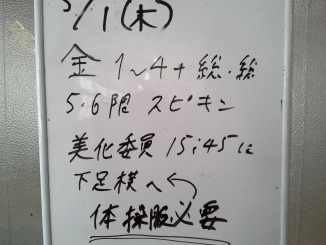 5/1(木)
金 1~4+総・総
5・6限 スピキン
美化委員 15:45に
下足横へ
体操服必要